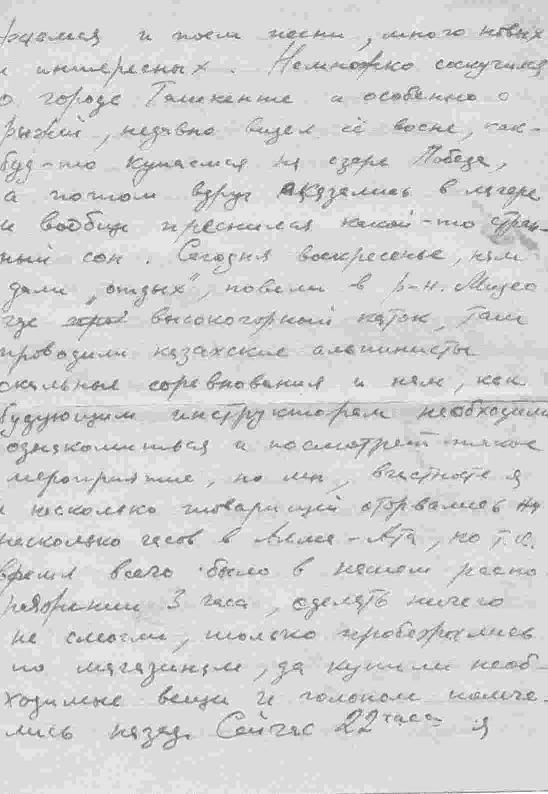 и поем песни, много новых
и интересных. Немножко соскучился
о городе Ташкенте и особенно о
рыжей, недавно видел её восне, как-
буд-то купаемся на озере Победа,
а потом вдруг оказались в лагере
и вообще преснился какой-то стран-
ный сон. Сегодня воскресенье, нам
дали „отдых", повели в р-н. Медео
где высокогорный каток, там
проводили казахские альпинисты
скальные соревнования и нам, как
будующим инструкторам необходимо
ознакомиться и посмотреть такое
мероприятие, но мы, вчастности я
и несколько товарищей оторвались на
несколько часов в Алма-Ата, но т.к.
время всего было в нашем распо-
ряжении 3 часа, сделать ничего
не смогли, только пробежались
по магазинам, да купили необ-
ходимые вещи и голопом помча-
лись назад. Сейчас 22 часа я